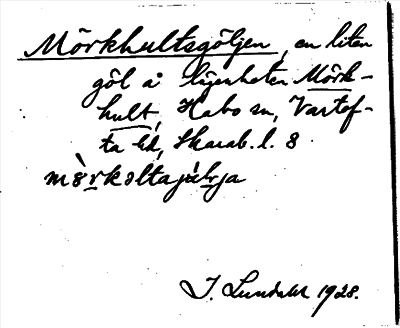 Mörkhultsgöljen, en liten
göl å lägenheten Mörk-
hult, Habo sn, Vartof-
ta hd, Skarab. l. 8
I. Lundahl 1928.